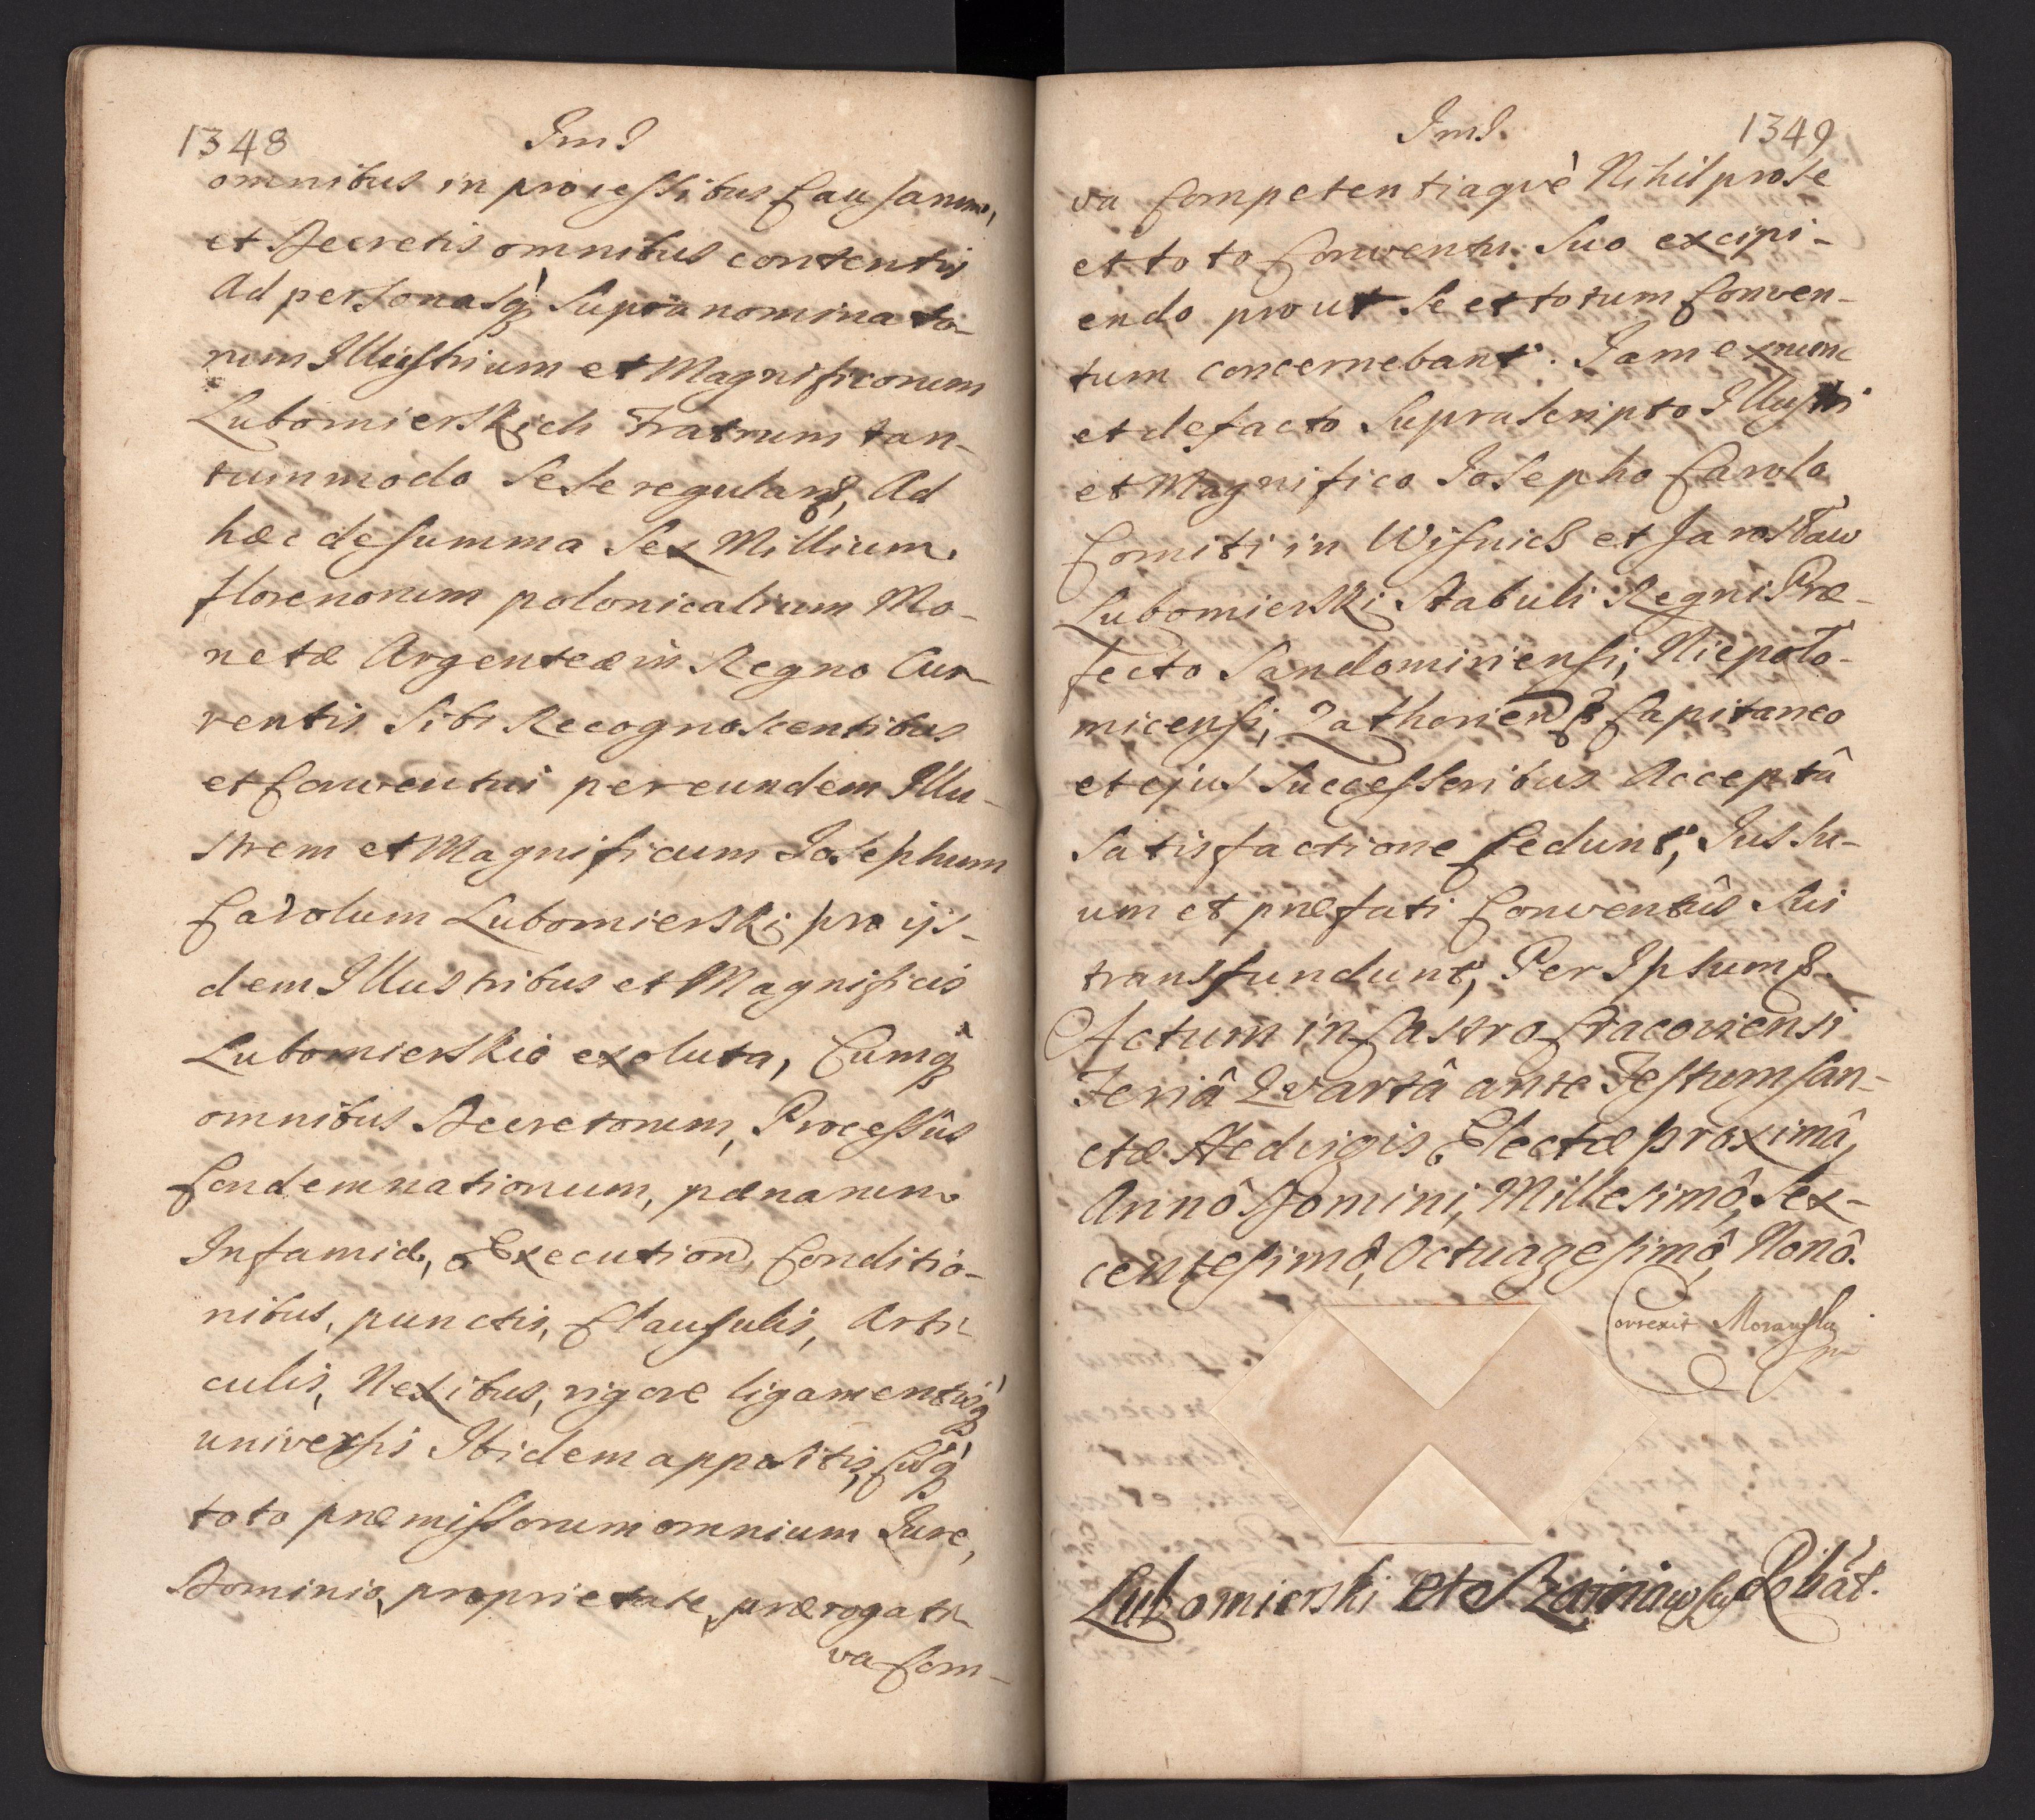 1348
ImI
omnibus in processibus Causarum,
et Decretis omnibus contentis
Ad personasq; Supra nominato-
rum Illustrium et Magnificorum
Lubomierskich Fratrum tan-
tummodo Sese regulan, Ad
hæc de summa Sex Millium
florenorum polonicalium Mo-
netæ Argenteæ in Regno Cur-
rentis Sibi Recognoscentibus
et Conventui per eundem Illu-
strem et Magnificum Josephum
Carolum Lubomierski pro ijs-
dem Illustribus et Magnificis
Lubomierskie exoluta, Cumq;
omnibus Decretorum, Processûs
Condemnationum, pænarum
Infamiæ, Execution, Conditio-
nibus, punctis, Clausulis, Arti-
culis, Nexibus, rigore ligamentisq;
universis Ibidem appositis, Cusq;
toto præmissorum omnium Jure,
Dominio, proprietate, prærogati-
va Com-
ImI.
1349
va Competentiaquè Nihil pro se
et toto Conventu Suo excipi-
endo prout Se et totum Conven-
tum concernebant. Jam ex nunc
et de facto Suprascripto Illustri
et Magnifico Josepho Carolo
Comiti in Wisnicz et Jarosław
Lubomierski Stabuli Regni Præ-
fecto Sandomiriensi, Niepoło-
micensi, Zathorien Capitaneo
et ejus Successoribus Acceptâ
Satisfactione Cedunt, Jus su-
um et præfati Conventûs Sui
transfundunt, Per Ipsum
Actum in Castro Cracoviensi
Feriâ Qvartâ ante Festum San-
ctæ Hedvigis Electæ proximâ,
Annô Domini, Millesimô, Sex-
centesimô, Octuagesimô, Nonô.
Correxit Morawsky
mp
Lubomierski et Rbát.